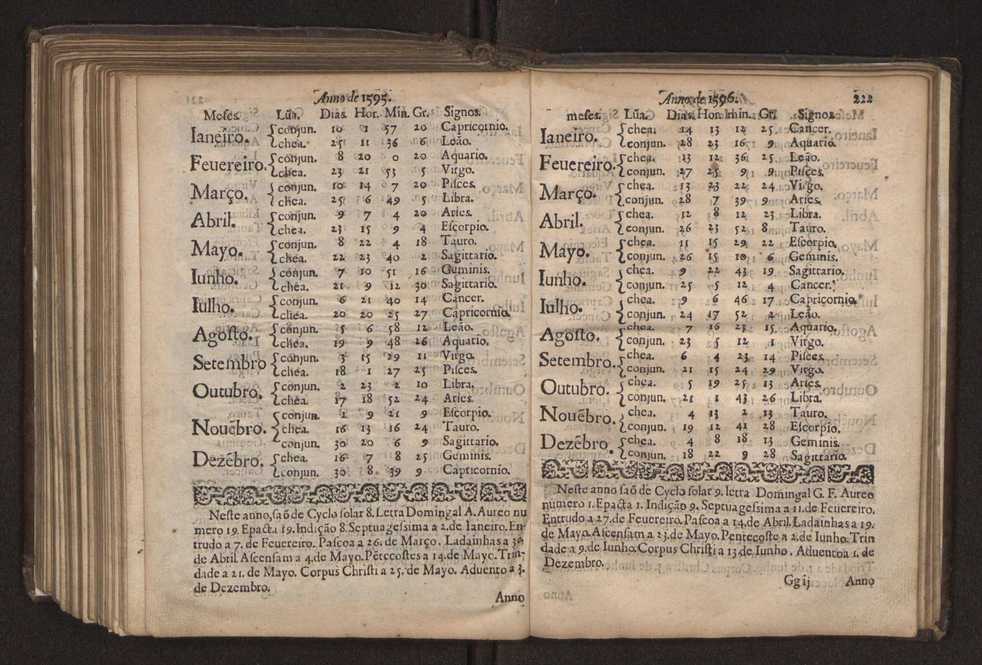 Anno de 1595.
Meses. Lũa. Dias. Hor. Min. Gr. Signos.
Ianeiro. conjun. 10 1 57 20 Capricornio.
chea. 25 11 36 6 Leão.
Feuereiro. conjun. 8 20 0 20 Aquario.
chea. 23 21 53 5 Virgo.
Março. conjun. 10 14 7 20 Pisces.
chea. 25 6 49 5 Libra.
Abril. conjun. 9 7 4 20 Aries.
chea. 23 15 9 4 Escorpio.
Mayo. conjun. 8 22 4 18 Tauro.
chea. 22 23 40 2 Sagittario.
Iunho. conjun. 7 10 51 16 Guminis.
chea. 21 9 12 30 Sagittario.
Iulho. conjun. 6 21 40 14 Cancer.
chea. 20 20 25 27 Capricornio.
Agosto. conjun. 5 6 58 12 Leão.
chea. 19 9 48 26 Aquario.
Setembro conjun. 3 15 29 11 Virgo.
chea. 18 1 27 25 Pisces.
Outubro. conjun. 2 23 2 10 Libra.
chea. 17 18 52 24 Aries.
conjun. 1 9 21 9 Escorpio.
Nouẽbro. chea. 16 13 16 24 Tauro.
conjun. 30 20 6 9 Sagittario.
Dezẽbro. chea. 16 7 8 25 Geminis.
conjun. 30 8 39 9 Capricornio.
Neste anno, saõ de Cyclo solar 8. Letra Domingal A. Aureo nu
mero 19. Epacta 19. Indição 8. Septuagessima a 2. de Ianeiro. En
trudo a 7. de Feuereiro. Pascoa a 26. de Março. Ladainhas a 30
de Abril. Ascensam a 4. de Mayo. Pẽtecostes a 14. de Mayo. Trin-
dade a 21. de Mayo. Corpus Christi a 25. de Mayo. Aduento a 3.
de Dezembro.
Anno
Anno de 1596. 222
meses. Lũa. Dias. Hor. min. Gr. Signos
Ianeiro. chea. 14 13 12 25 Cancer.
conjun. 28 23 16 9 Aquario.
Feuereiro. chea. 13 12 36 25 Leão.
conjun. 27 25 9 9 Pisces.
Março. chea. 13 23 22 24 Virgo.
conjun. 28 7 39 9 Aries.
Abril. chea. 12 8 12 23 Libra.
conjun. 26 23 52 8 Tauro.
Mayo. chea. 11 15 29 22 Escorpio.
conjun. 26 15 10 6 Geminis.
Iunho. chea. 9 22 43 19 Sagittario.
conjun. 25 5 12 4 Cancer.
Iulho. chea. 9 6 46 17 Capricornio.
conjun. 24 17 52 2 Leão.
Agosto. chea. 7 16 23 15 Aquario.
conjun. 23 5 12 1 Virgo.
Setembro. chea. 6 4 23 14 Pisces.
conjun. 21 15 24 29 Virgo.
Outubro. chea. 5 19 25 13 Aries.
conjun. 21 1 43 26 Libra.
Nouẽbro. chea. 4 13 2 13 Tauro.
conjun. 19 12 41 28 Escorpio.
Dezẽbro chea. 4 8 18 13 Geminis.
conjun. 18 22 9 28 Sagittario.
Neste anno saõ de Cyclo solar 9. letra Domingal G. F. Aureo
numero 1. Epacta 1. Indição 9. Septuagessima a 11. de Feuereiro.
Entrudo a 27. de Feuereiro. Pascoa a 14. de Abril. Ladainhas a 19.
de Mayo. Ascensam a 23. de Mayo. Pentecoste a 2. de Iunho. Trin
dade a 9. de Iunho. Corpus Christi a 13 de Iunho. Aduentoa 1. de
Dezembro.
Gg ij Anno